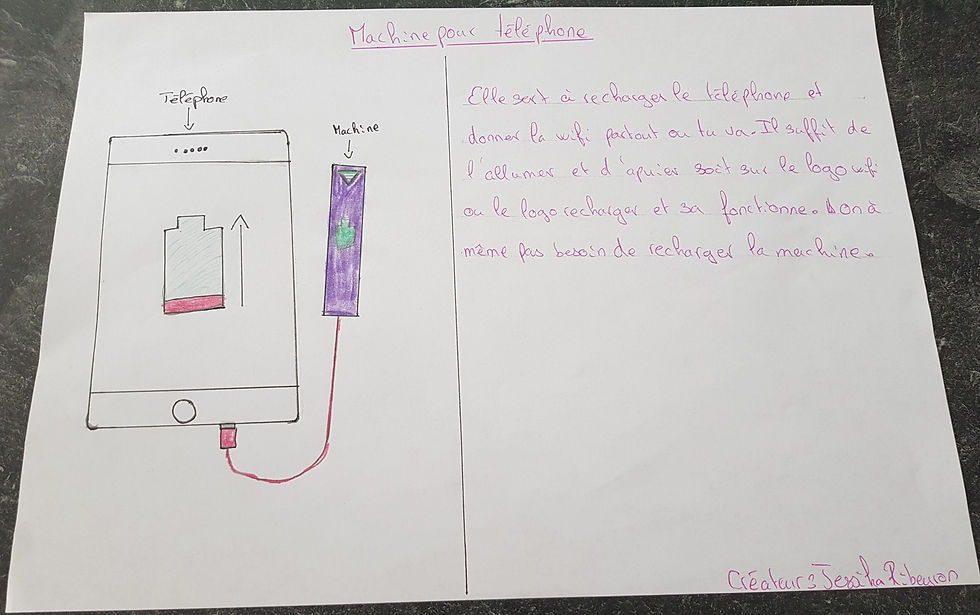 Machine pour téléphone
Téléphone
Machine
Elle sert à recharger le téléphone et
donner la wifi partout ou tu va. Il suffit de
l'allumer et d'apuier soit sur le logo wifi
ou le logo recharger et sa fonctionne. on à
même pas besoin de recharger la machine.
Créateur: